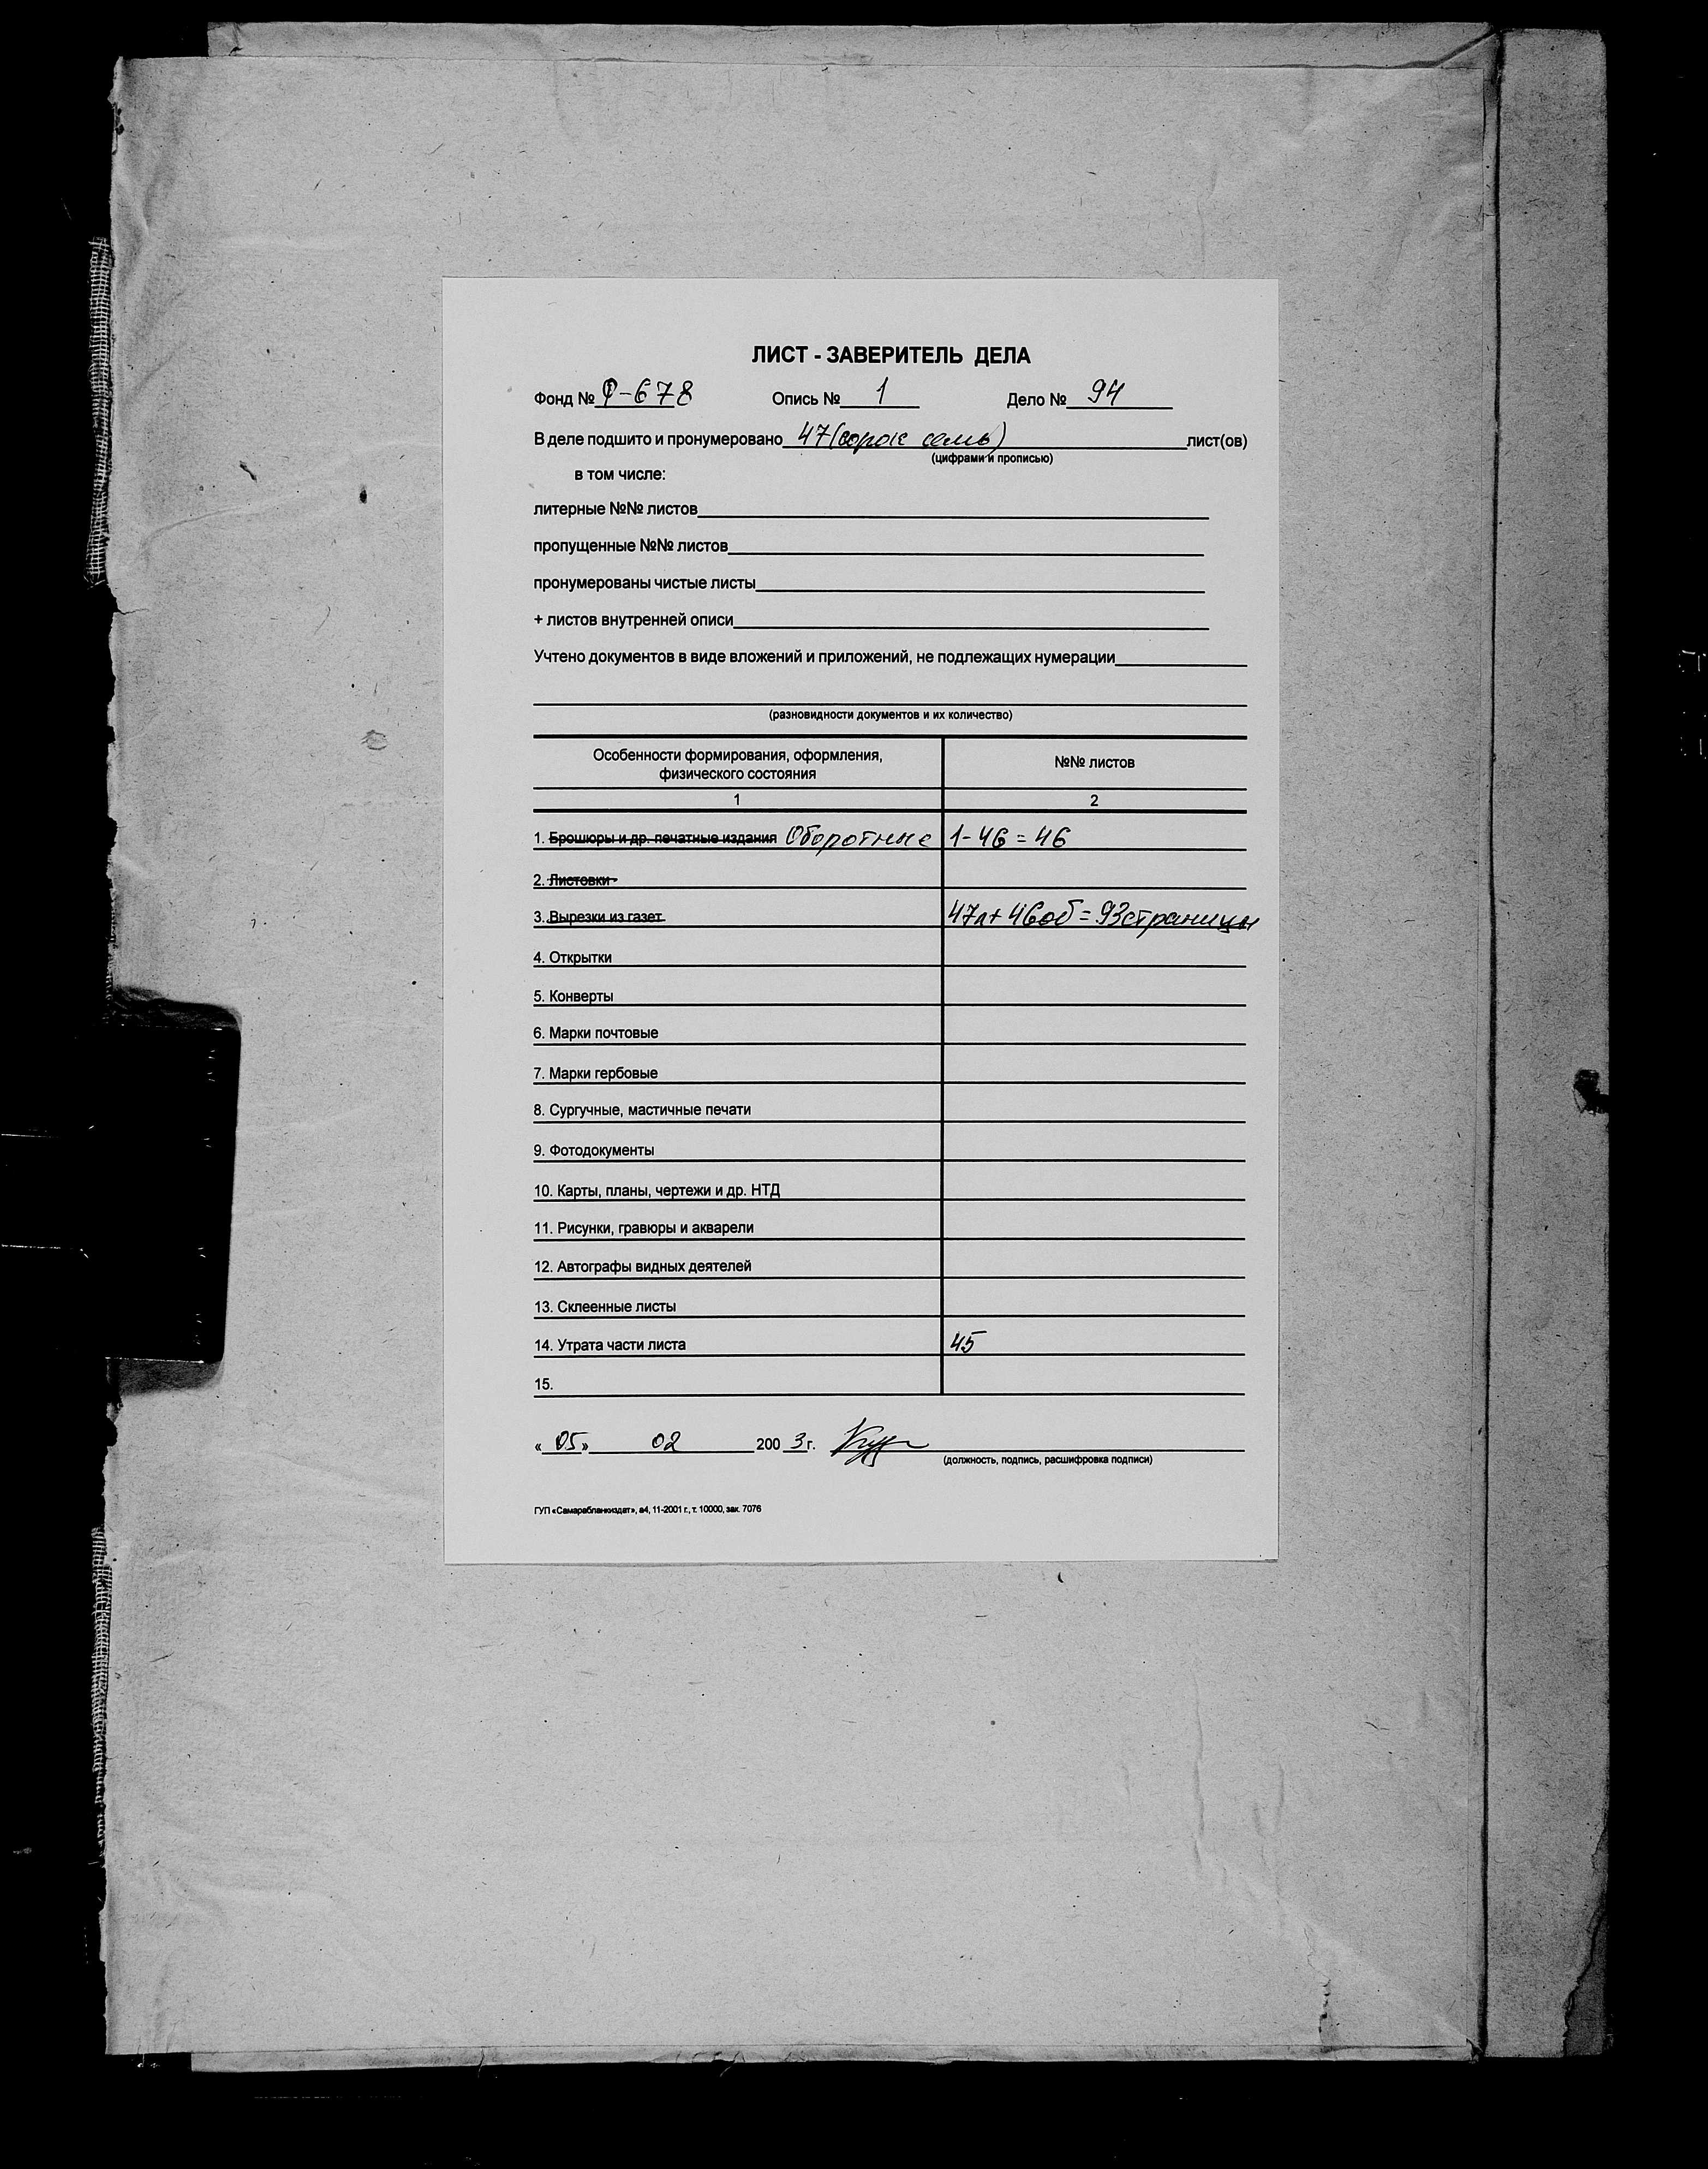 ЛИСТ - ЗАВЕРИТЕЛЬ ДЕЛА
Фонд № Ф-678 Опись № 1 Дело № 94
В деле подшито и пронумеровано 47 (сорок семь) лист(ов)
(цифрами и прописью)
в том числе:
литерные №№ листов
пропущенные №№ листов
пронумерованы чистые листы
+ листов внутренней описи
Учтено документов в виде вложений и приложений, не подлежащих нумерации
(разновидности документов и их количество)
Особенности формирования, оформления, №№ листов
физического состояния
1 2
1. Брошюры и др. печатные издания Оборотные 1-46 = 46
2. Листовки
3. Вырезки из газет 47л + 46об = 93 страницы
4. Открытки
5. Конверты
6. Марки почтовые
7. Марки гербовые
8. Сургучные, мастичные печати
9. Фотодокументы
10. Карты, планы, чертежи и др. НТД
11. Рисунки, гравюры и акварели
12. Автографы видных деятелей
13. Склеенные листы
14. Утрата части листа 45
15.
« 05 » 02 200 3 г.
(должность, подпись, расшифровка подписи)
ГУП «Самарабланкиздат», а4, 11-2001 г., т. 10000, зак. 7076